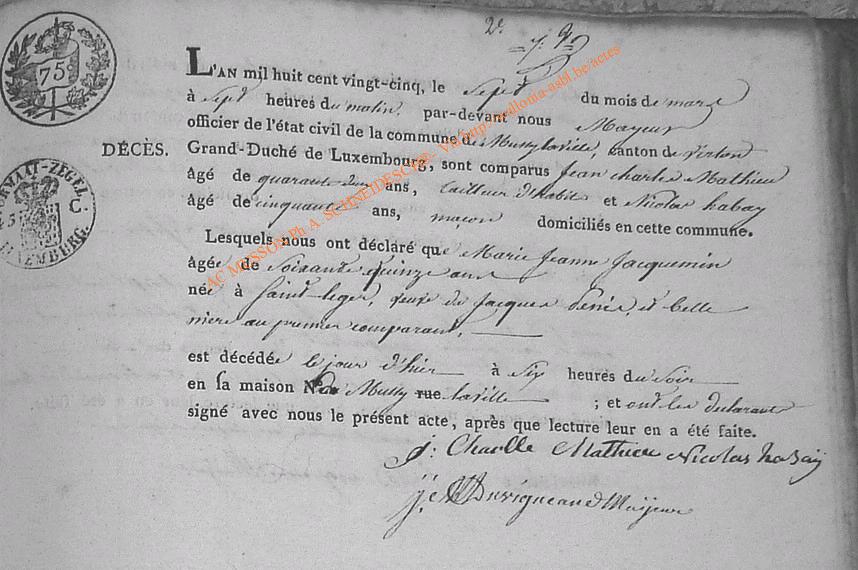 2e
75c
L'AN mil huit cent vingt-cinq, le Sept du mois de mars
à Sept heures du matin, par-devant nous Mayeur
officier de l'état civil de la commune de Mussy laville, canton de virton
DÉCÈS. Grand-Duché de Luxembourg, sont comparus Jean charles Mathieu
âgé de quarante deux ans, tailleur d'habit et Nicolas habay
âgé de cinquante ans, maçon domiciliés en cette commune.
Lesquels nous ont déclaré que Marie Jeanne Jacquemin
âgée de Soixante quinze ans
née à Saint leger, veuve de Jacques Denis, et belle
mere au premier comparant,
est décédée le jour d'hier à Six heures du Soir
en sa maison No a Mussy rue laville ; et ont les declarants
signé avec nous le présent acte, après que lecture leur en a été faite.
j. Charlle Mathieu Nicolas habaÿ
Duvigneaud Maÿeur
AC MUSSON Ph A. SCHNEIDESCH - via luxroots-wallonia-asbl.be/actes
ZEGEL
C.
LUXEMBURG.